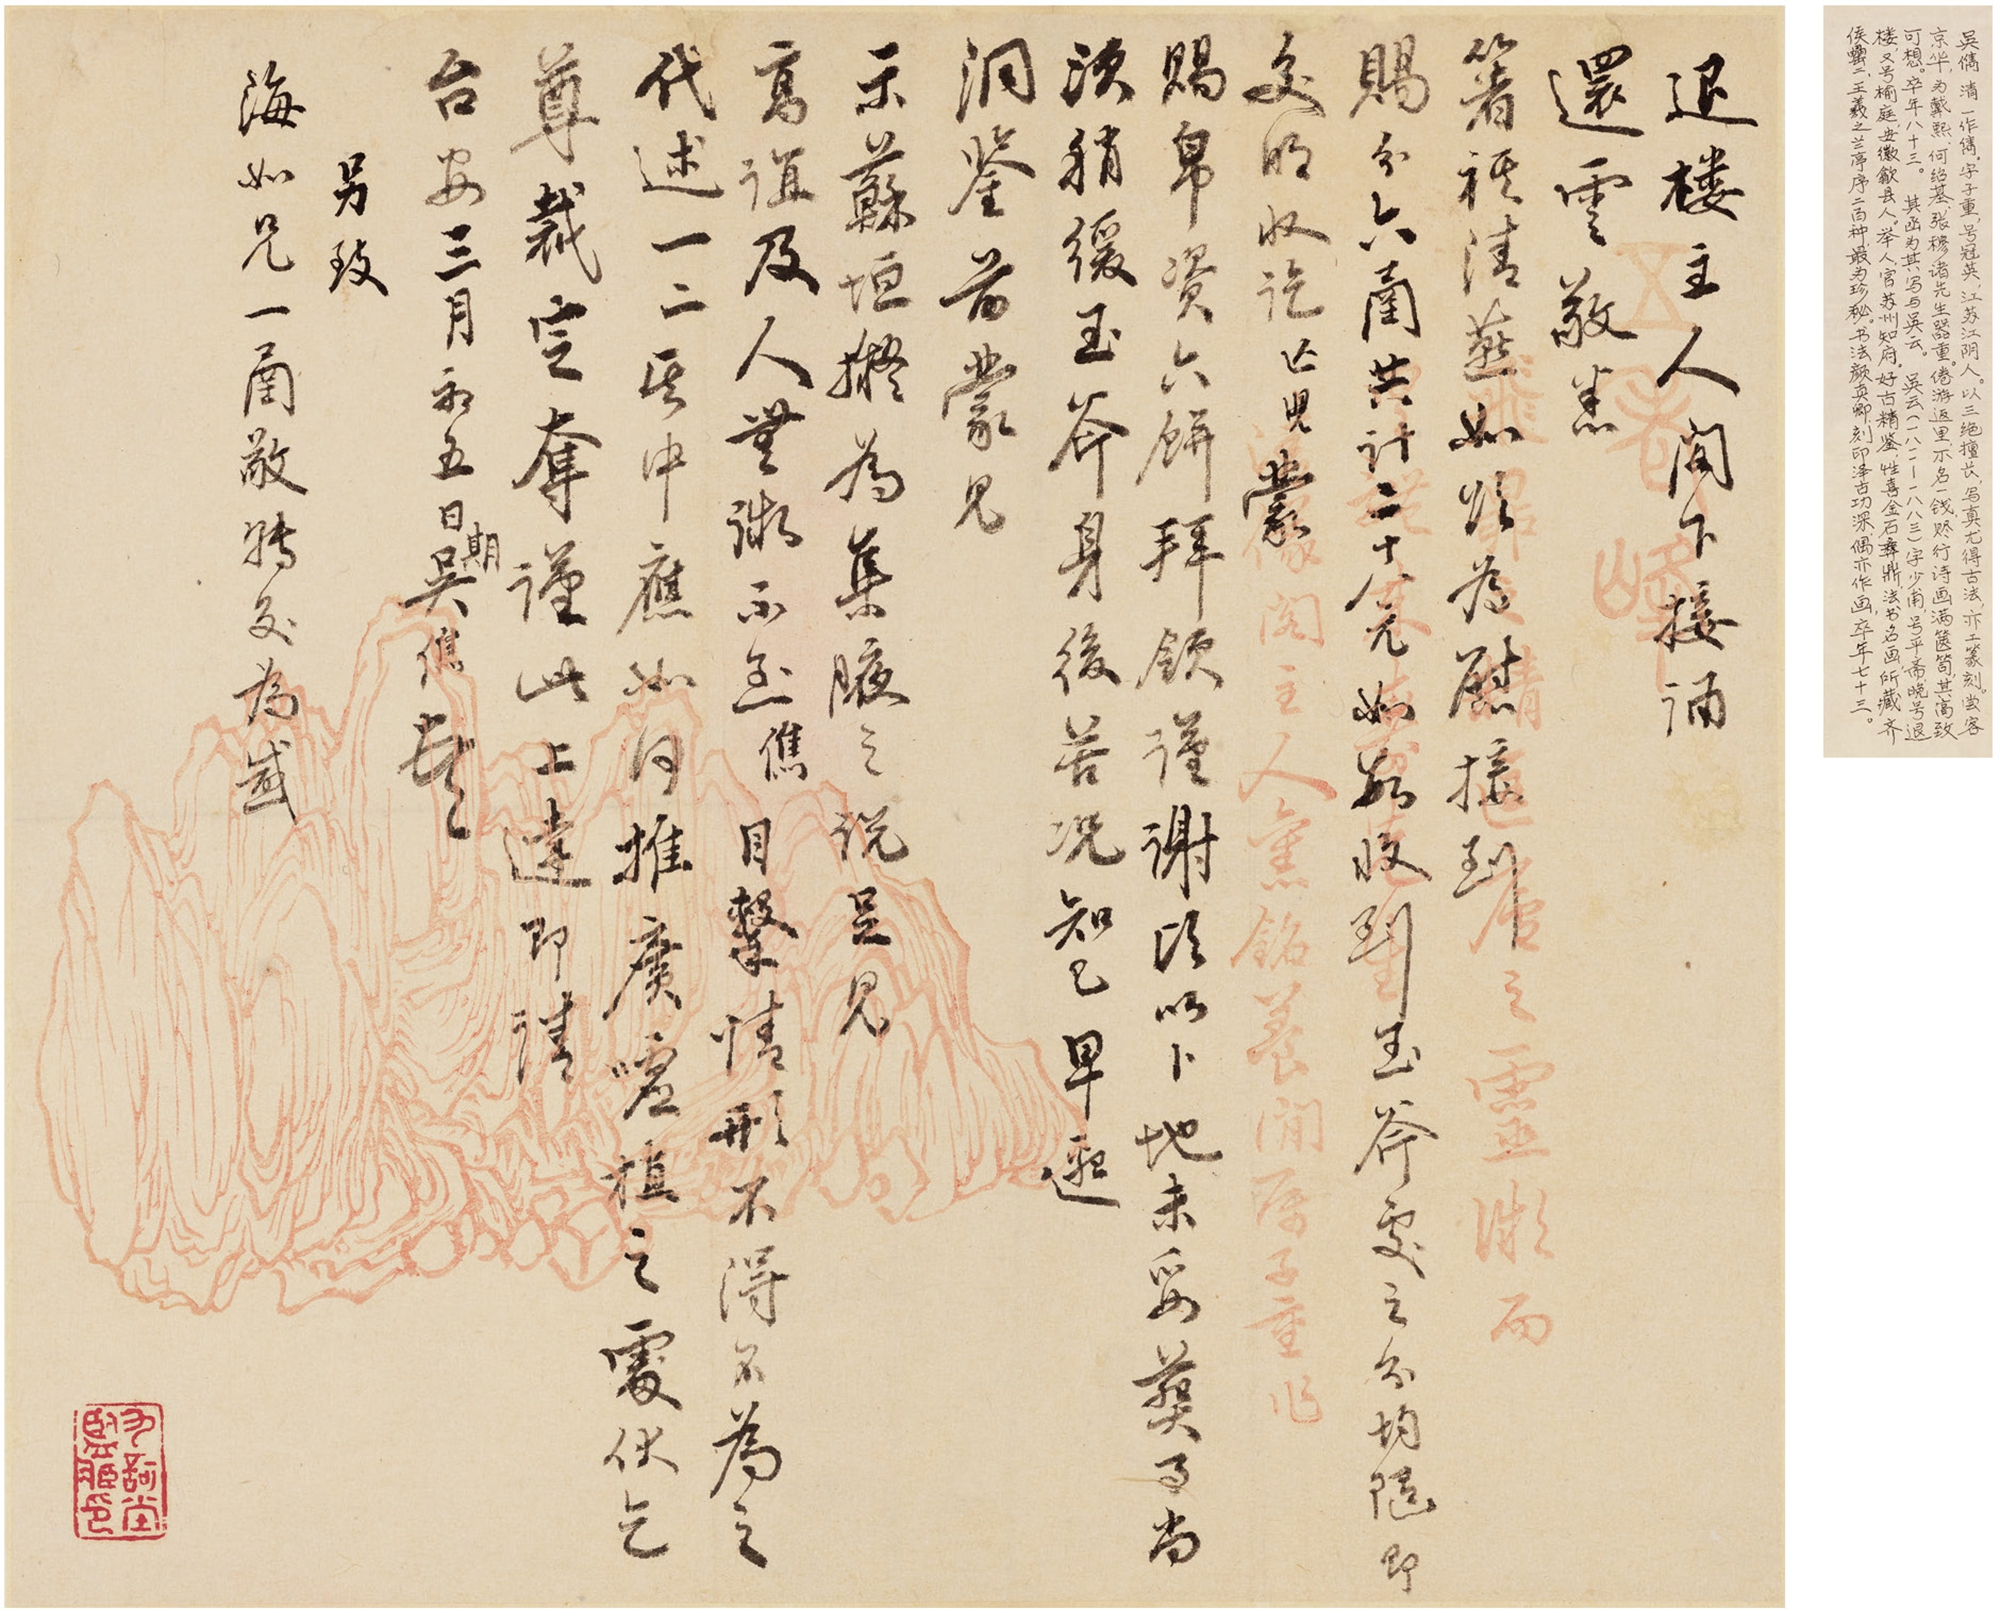 退楼主人阁下接诵
還雲敬悉
箸祺清燕如頌為慰接到
賜分六函共計二十八元如数收到玉斧處之分均随即
交明收訖
蒙
賜帛資六餅拜領謹謝
以卜地未妥葬事尚
須稍缓玉斧身後苦况知己早邀
洞鉴昔蒙兄
示蘇垣擬為集腋之说足見
高谊及人無微不至儁目擊情形不得不為之
代述一二其中應如何推廣嘘植之處伏乞
尊裁定奪谨此上達即请
台安三月初五日期吴儁
另致
海如兄一函敬转交為感
五老峰
靈湫而
主人
作
吴儁 清 一作儁。字子重,号冠英,江苏江阴人。以三绝擅长,写真尤得古法,亦工篆刻。尝客
京华,为戴熙、何绍基、张穆诸先生器重。倦游返里,不名一钱,赆行诗画满箧笥,其高致
可想。卒年八十三。 其函为其写与吴云。 吴云(一八一一—一八八三)字少甫,号平斋,晚号退
楼,又号榆庭,安徽歙县人。举人,官苏州知府。好古精鉴,性喜金石彝鼎、法书名画,所藏齐
侯罍二、王羲之兰亭序二百种,最为珍秘。书法颜真卿,刻印泽古功深,偶亦作画,卒年七十三。